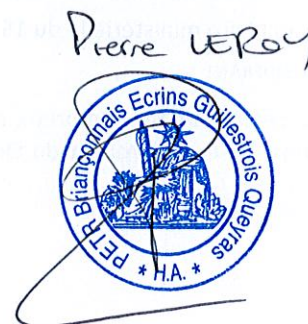 Pierre LEROY
PETR Briançonnais Ecrins Guillestrois Queyras
* H.A. *